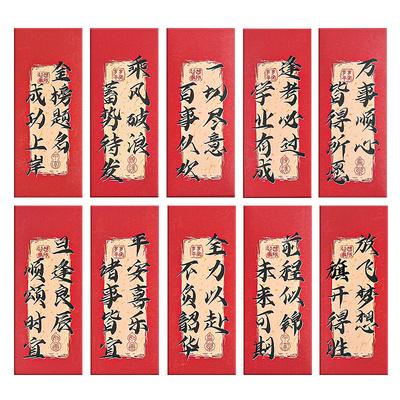 金榜题名
成功上岸
乘风破浪
蓄势待发
一切尽意
百事从欢
逢考必过
学业有成
万事顺心
皆得所愿
旦逢良辰
顺颂时宜
平安喜乐
诸事皆宜
全力以赴
不负韶华
前程似锦
未来可期
放飞梦想
旗开得胜